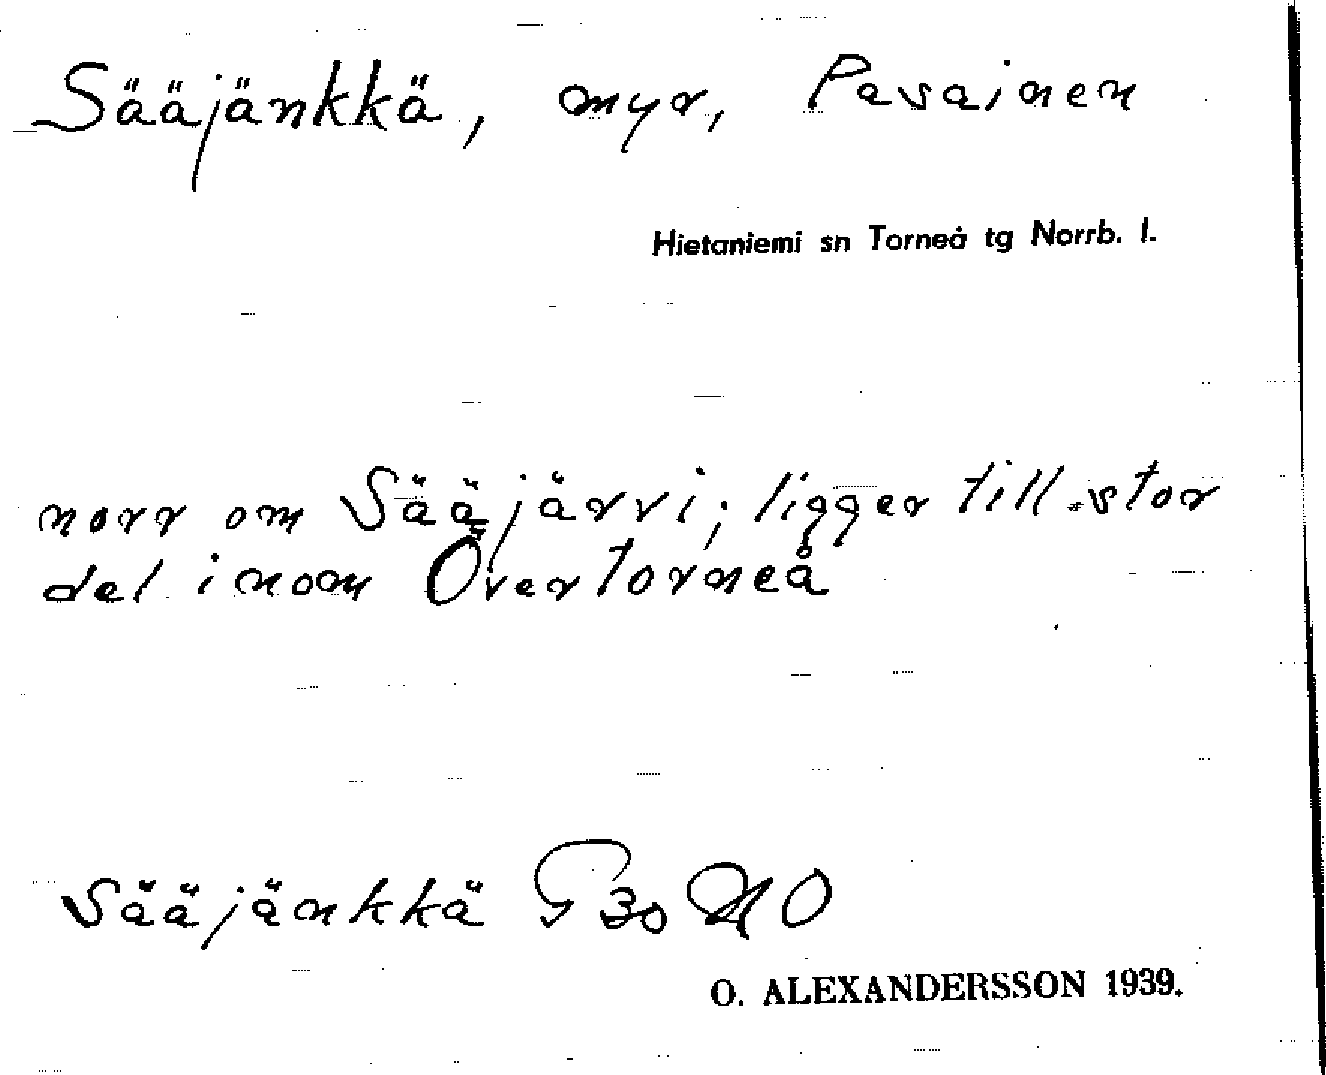 Sääjänkkä, myr, Pasainen
Hietaniemi sn Torneå tg Norrb. l.
norr om Sääjärvi; ligger till stor
del inom Övertorneå
Sääjänkkä G 30 NO
O. ALEXANDERSSON 1939.